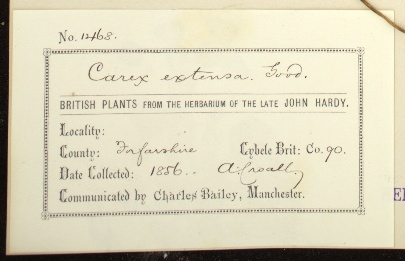 No. 1468.
Carex extensa. Good.
BRITISH PLANTS FROM THE HERBARIUM OF THE LATE JOHN HARDY.
Locality:
County: Forfarshire Cybele Brit: Co. 90.
Date Collected: 1856. A. Croall,
Communicated by Charles Bailey, Manchester.